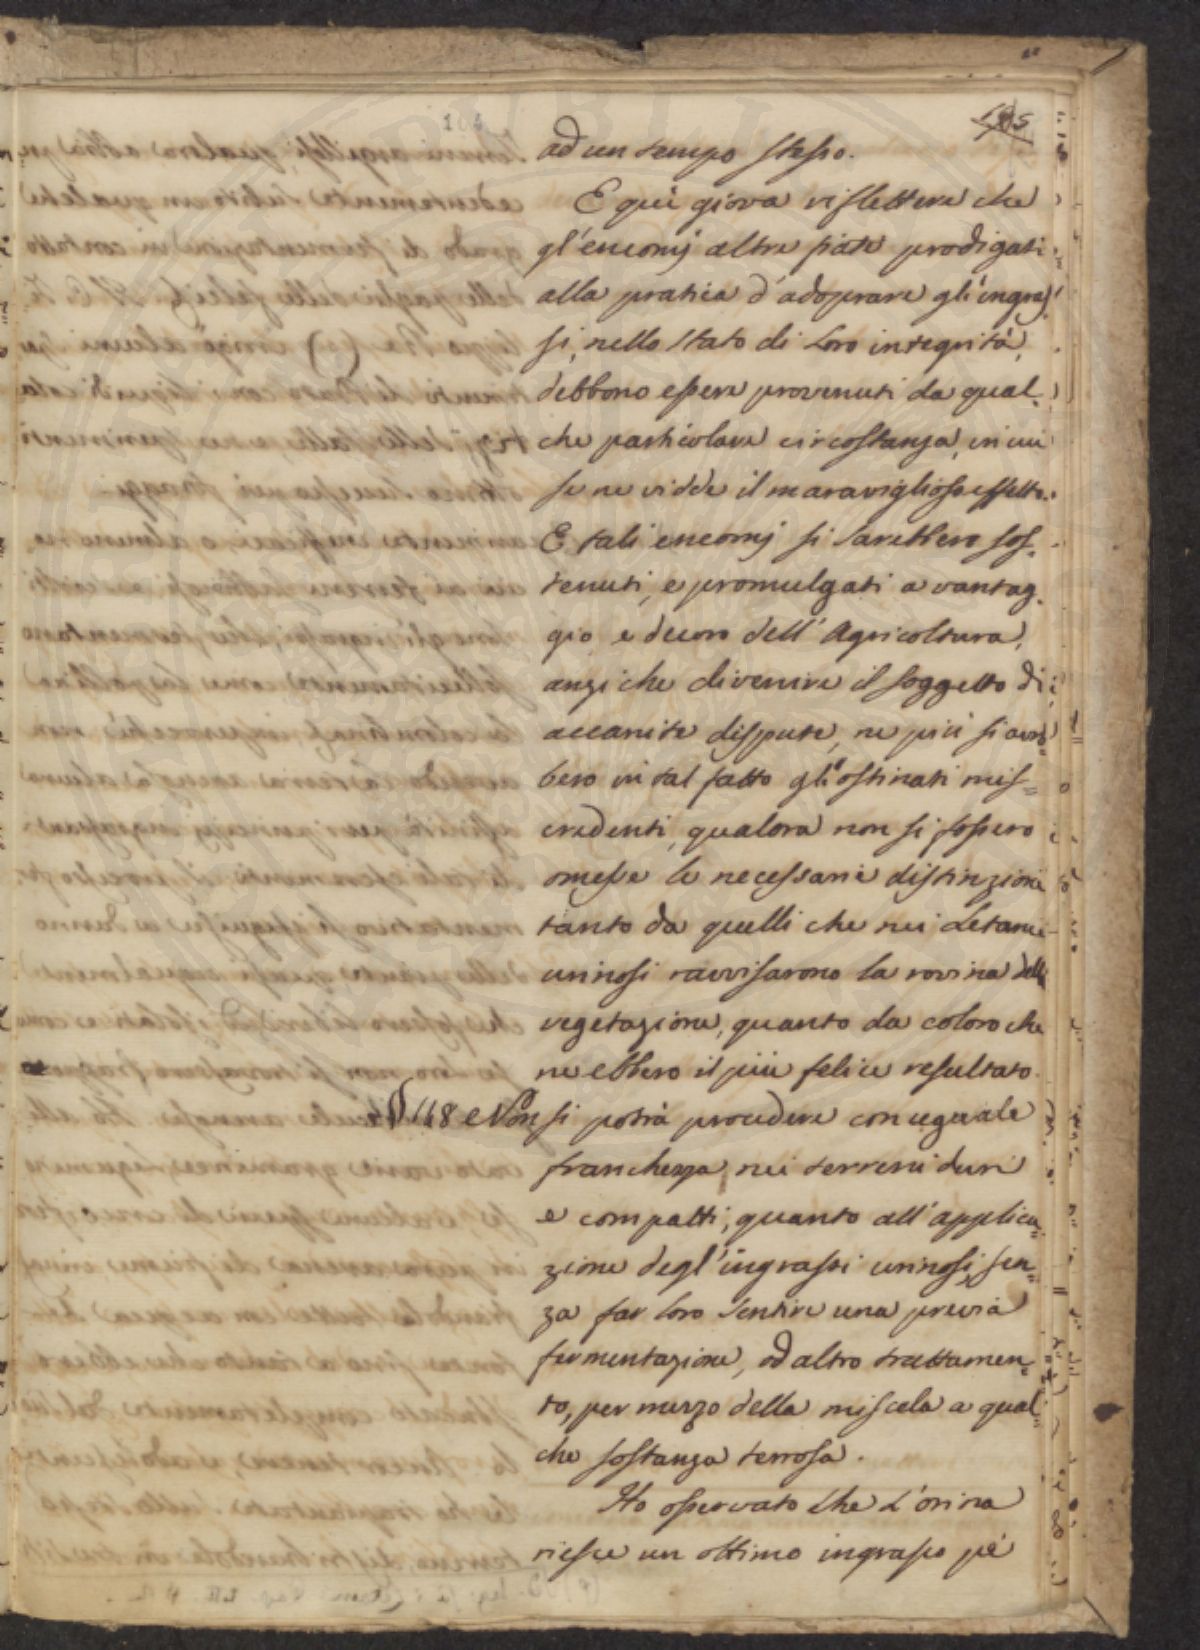 105
ad un tempo stesso.
E quì giova riflettere che
gl'encomj altre fiate prodigati
alla pratica d'adoprare gl'ingras
si, nello stato di Loro integrità,
debbono essere provenuti da qual=
che particolare circostanza, in cui
se ne vidde il maraviglioso effetto.
E tali encomj si sarebbero sos=
tenuti, e promulgati a vantag=
gio, e decoro dell'Agricoltura,
anziche divenire il soggetto di
accanite dispute, ne più si avre=
bero in tal fatto gl'ostinati mis=
credenti, qualora non si fossero
omesse le necessarie distinzioni
tanto da quelli che nei Letami
urinosi ravvisarono la rovina della
vegetazione, quanto da coloro che
ne ebbero il più felice resultato.
§ 148 Non si potrà procedere con eguale
franchezza nei terreni duri
e compatti, quanto all'applica=
zione degl'ingrassi urinosi, sen=
za far loro sentire una previa
fermentazione, od altro trattamen=
to, per mezzo della miscela a qual=
che sostanza terrosa.
Ho osservato che l'orina
riesce un ottimo ingrasso pe'